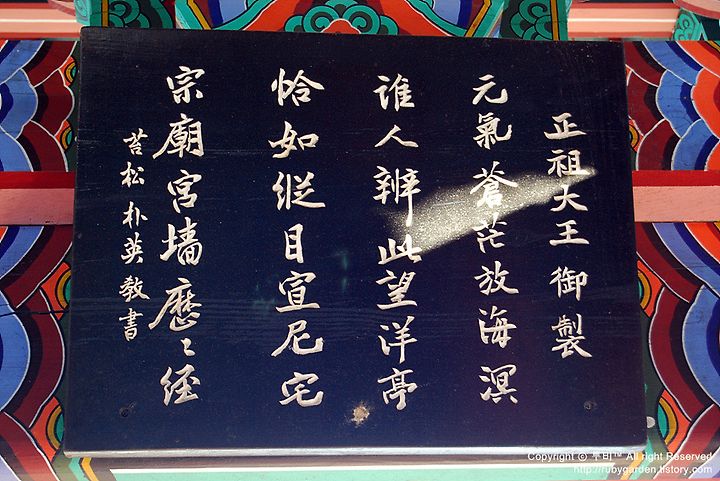 正祖大王御製
元氣蒼茫放海溟
誰人辨此望洋亭
恰如縱目宣尼宅
宗廟宮墻歷〻經
苔松朴英敎書
Copyright ⓒ 루비™ All right Reserved
http://rubygarden.tistory.com